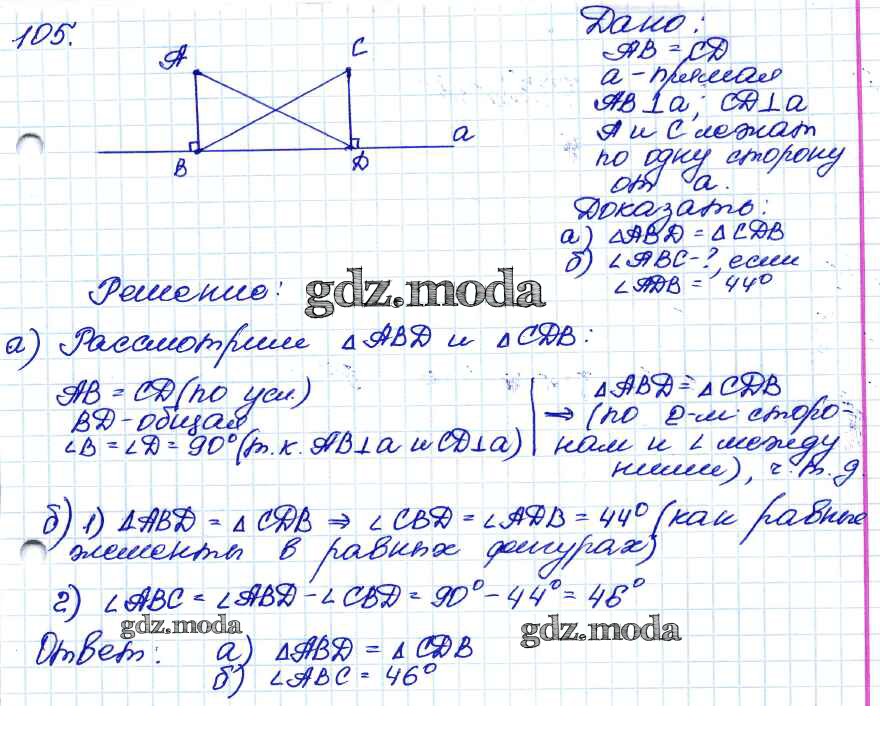 105.
A
C
B
D
a
Дано:
AB = CD
a - прямая
AB⊥a; CD⊥a
A и C лежат
по одну сторону
от a.
Доказать:
а) △ABD = △CDB
б) ∠ABC - ?, если
∠ADB = 44°
Решение:
gdz.moda
а) Рассмотрим △ABD и △CDB:
AB = CD (по усл.)
BD - общая
∠B = ∠D = 90° (т.к. AB⊥a и CD⊥a)
△ABD = △CDB
⇒ (по 2-м сторо-
нам и ∠ между
ними), ч.т.д.
б) 1) △ABD = △CDB ⇒ ∠CBD = ∠ADB = 44° (как равные
элементы в равных фигурах)
2) ∠ABC = ∠ABD - ∠CBD = 90° - 44° = 46°
gdz.moda
gdz.moda
Ответ: а) △ABD = △CDB
б) ∠ABC = 46°